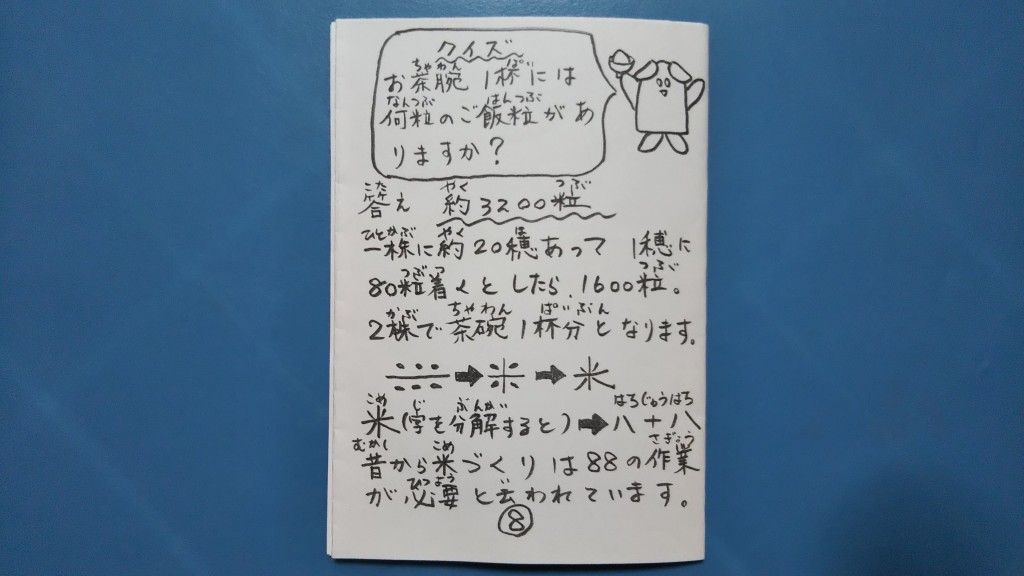 クイズ
お茶腕1杯には
何粒のご飯粒があ
りますか?
答え 約3200粒
一株に約20穂あって 1穂に
80粒着くとしたら、1600粒。
2株で茶碗1杯分となります。
米(字を分解すると)➡八十八
昔から米づくりは88の作業
が必要と云われています。
⑧